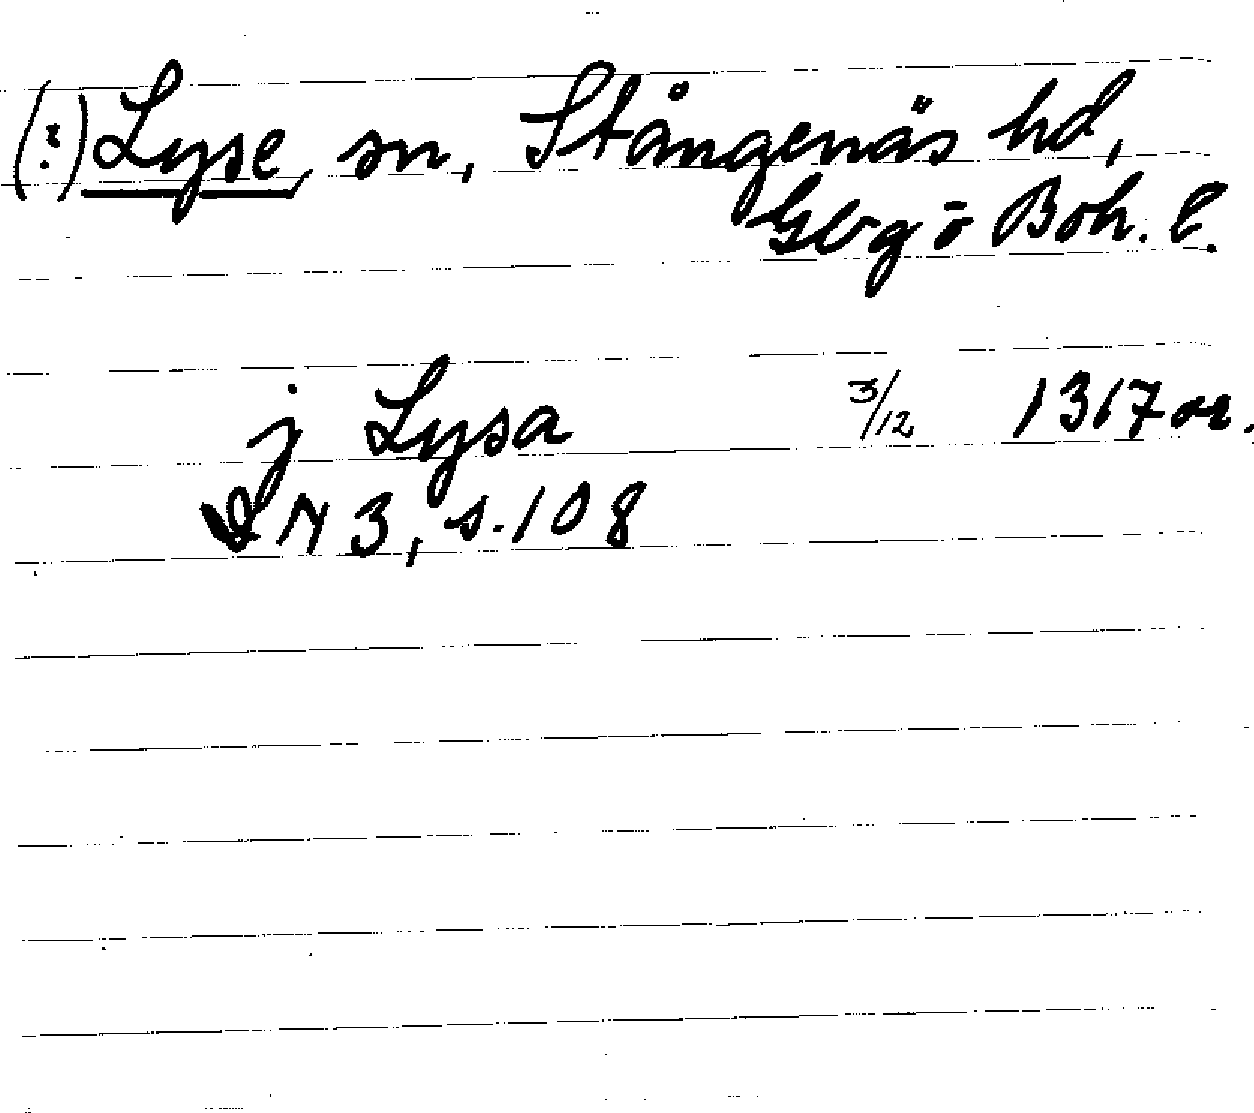 (?) Lyse, sn, Stångenäs hd,
Gbg o Boh. l.
j Lysa 3/12 1317 or.
DN 3, s. 108